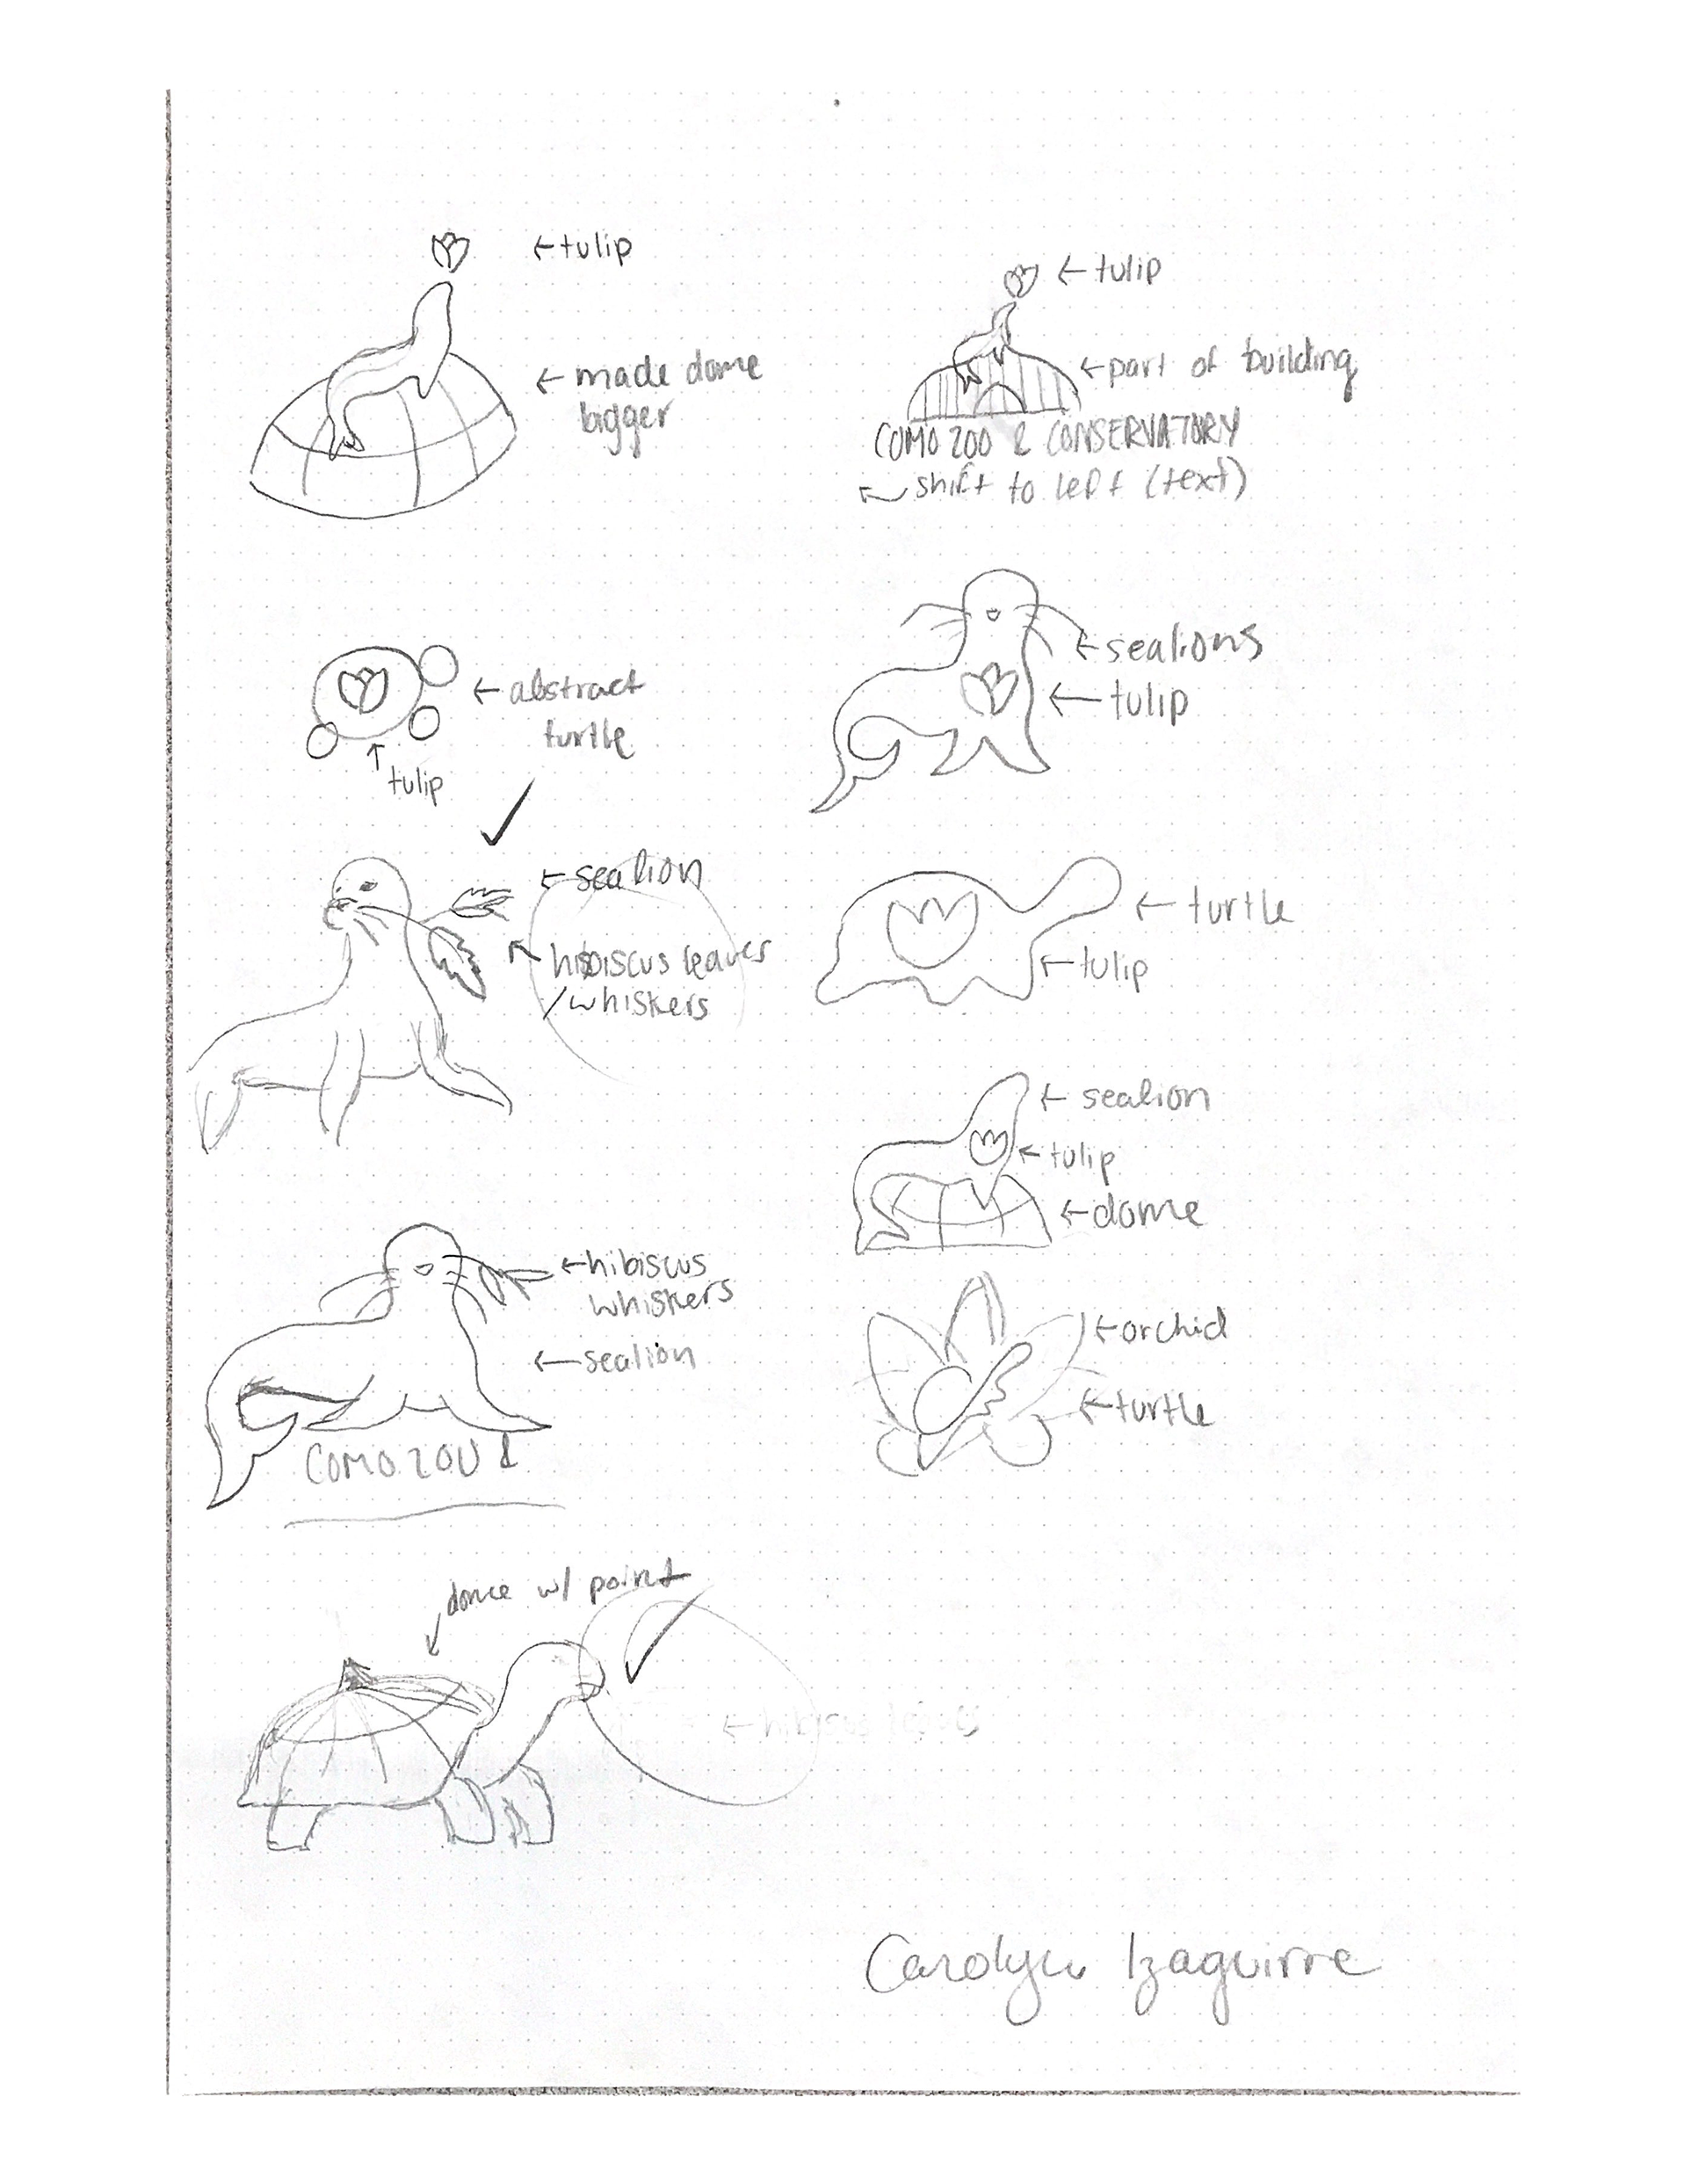 ←tulip
← made dome
bigger
← tulip
←part of building
COMO ZOO & CONSERVATORY
← shift to left (text)
← abstract
turtle
↑
tulip
← sealions
← tulip
← sealion
hibiscus leaves
/whiskers
← turtle
← tulip
← sealion
← tulip
← dome
← hibiscus
whiskers
← sealion
COMO ZOO &
← orchid
← turtle
dome w/ point
← hibiscus
Carolyn Izaguirre